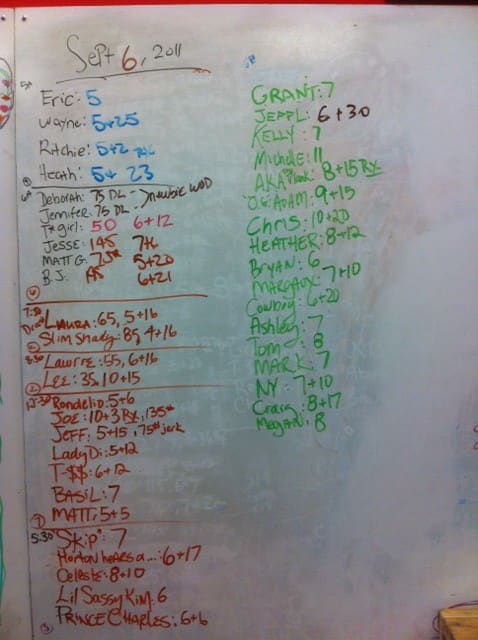 Sept 6, 2011
5A
Eric: 5
Wayne: 5+25
Ritchie: 5+2
Heath: 5+ 23
④
6A
Deborah: 75 DL - >newbie WOD
Jennifer: 75 DL -
T*girl: 50 6+12
Jesse: 145 7+6
MATT G: 75# 5+20
B.J. 6+21
⑥
7:30
LAURA: 65, 5+16
Slim Shady: 85, 4+16
②
8:30
LAWRRE: 55, 6+16
LEE: 35, 10+15
②
12:30
Rondelio: 5+6
JOE: 10+3 RX, 135#
JEFF: 5+15, 75# jerk
Lady Di: 5+12
T-$$: 6+12
BASIL: 7
MATT: 5+5
⑦
5:30
"Skip": 7
Horton hears a...: 6+17
Celeste: 8+10
Lil Sassy Kim: 6
PRINCE CHARLES: 6+6
⑤
GRANT: 7
JEFFL: 6+30
KELLY: 7
Michele: 11
AKA Plank: 8+15 RX
O.G. ADAM: 9+15
Chris: 10+20
HEATHER: 8+12
BRYAN: 6
MARGAUX: 7+10
Cowboy: 6+20
Ashley: 7
Tom: 8
MARK: 7
NY: 7+10
Craig: 8+17
MEGAN: 8